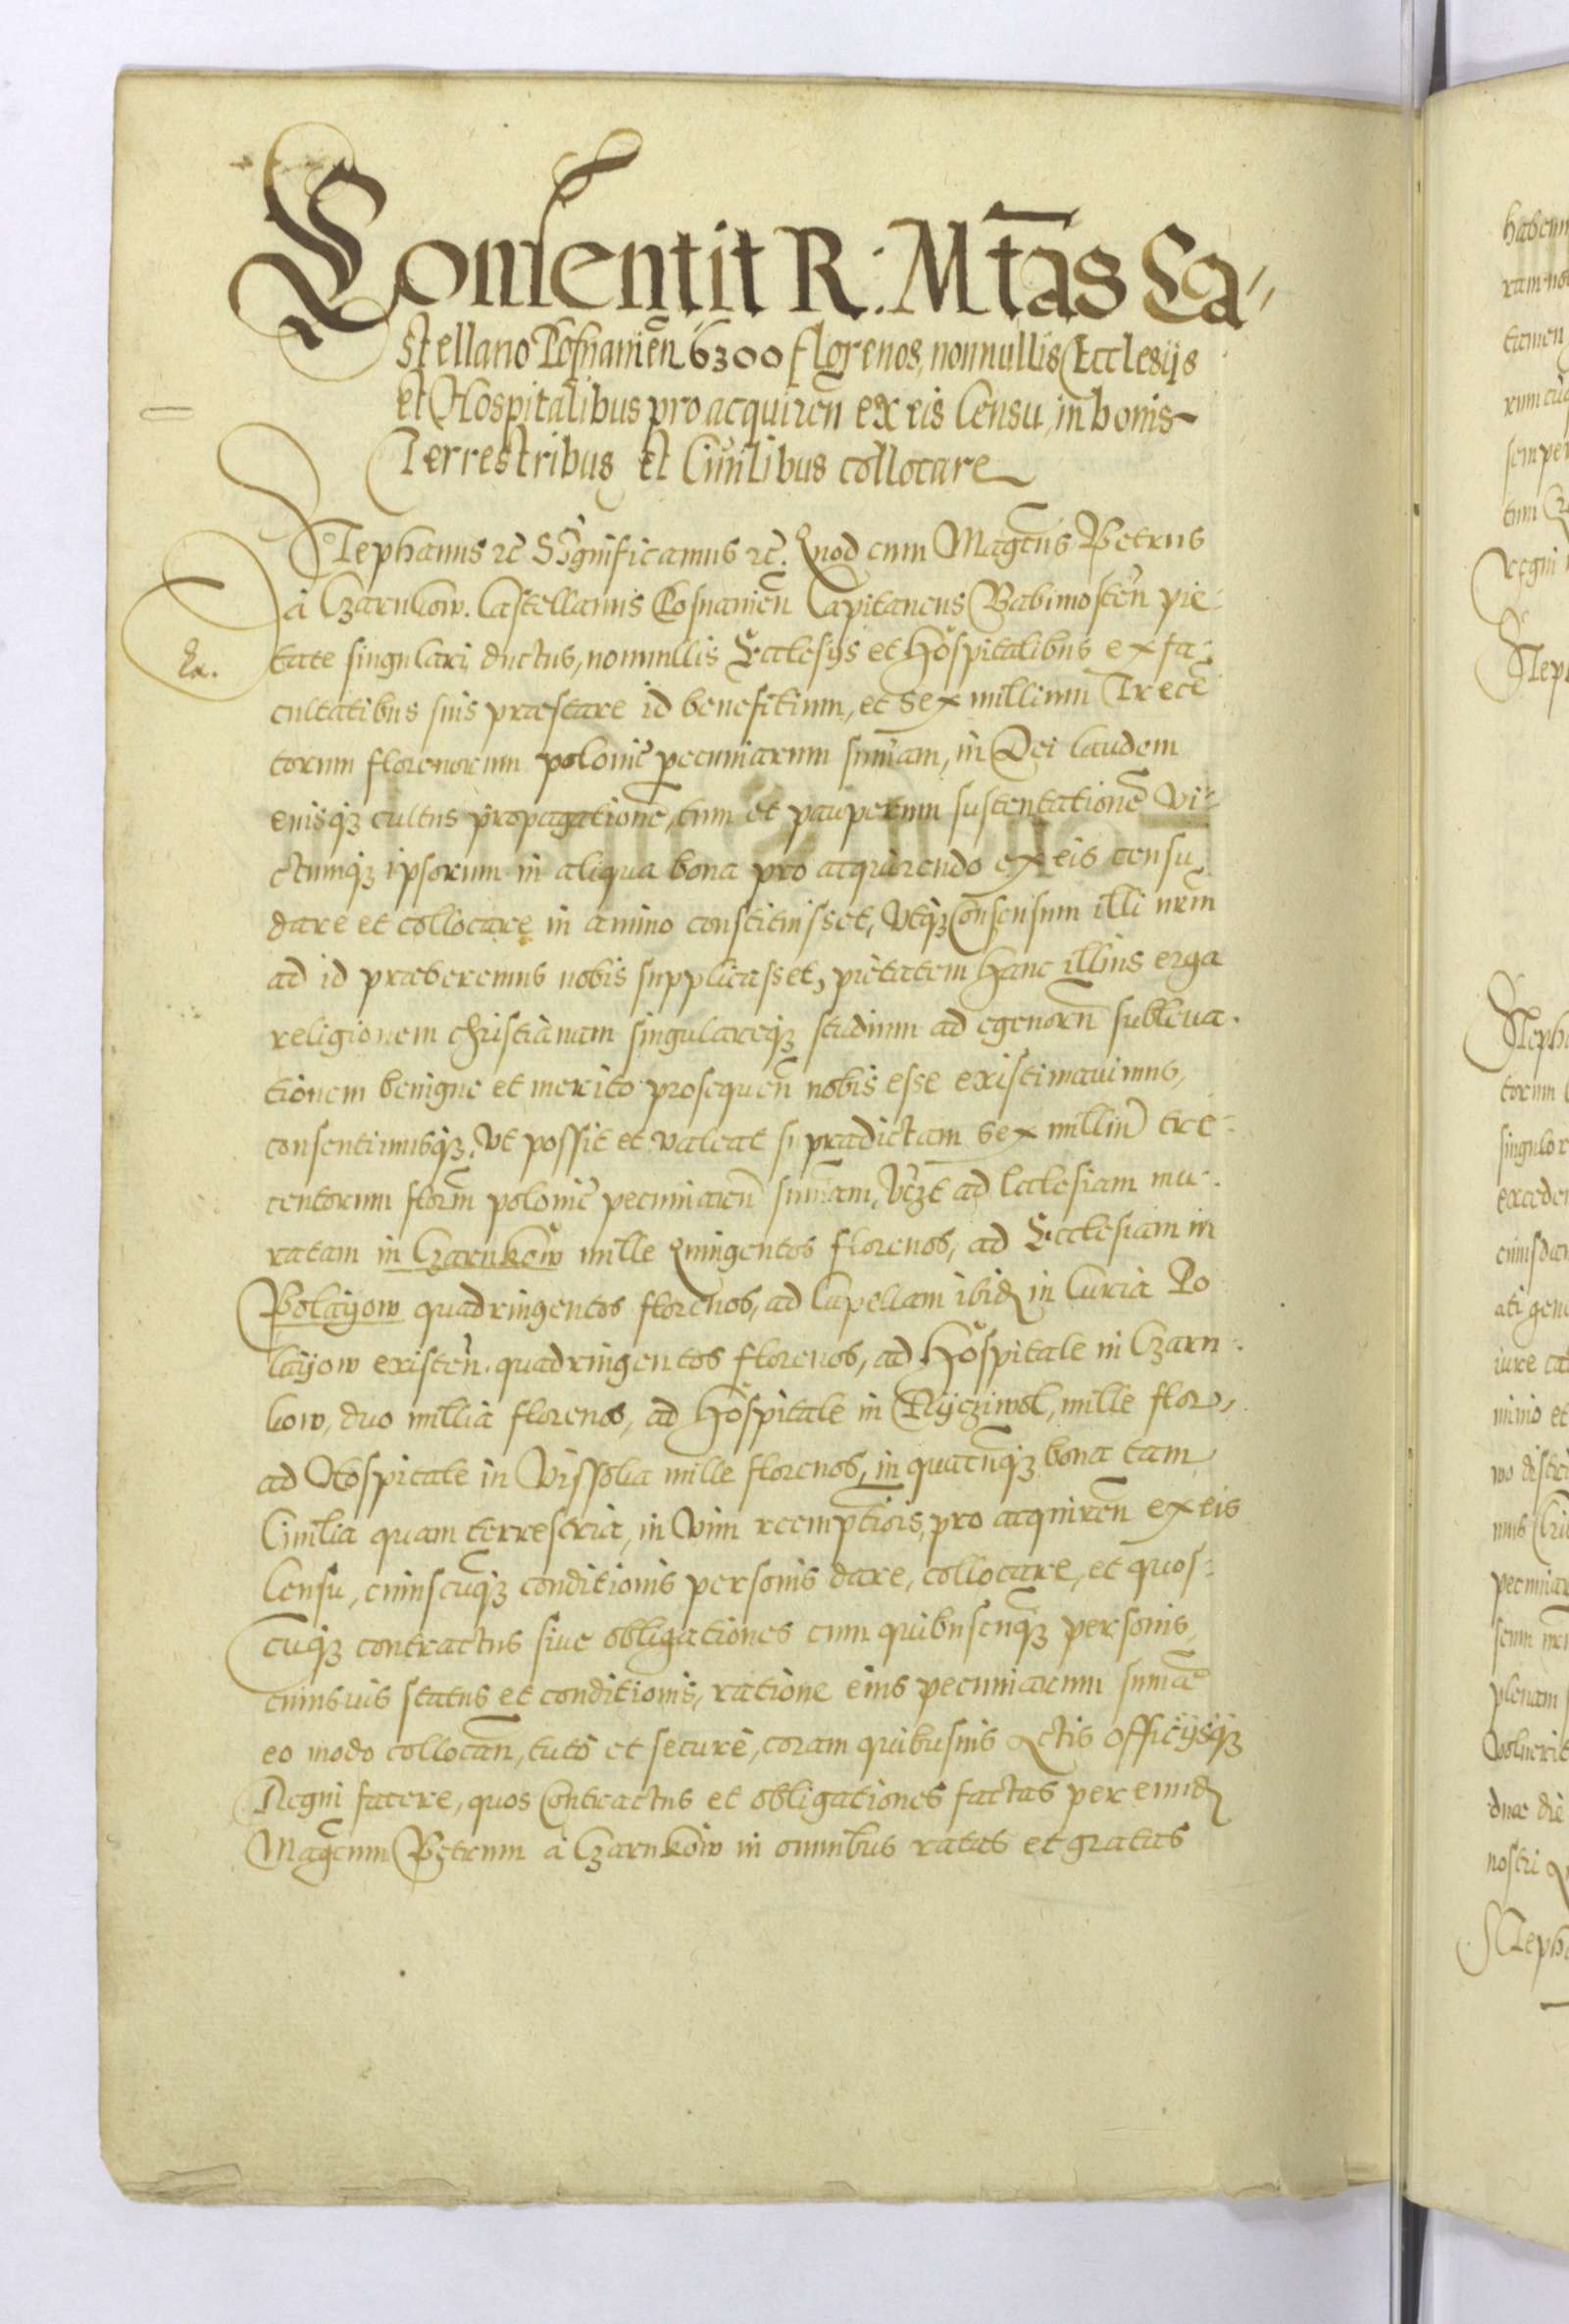 Consentit R. Mtas Ca-
stellano Posnanien 6300 florenos, nonnullis Ecclesijs
et Hospitalibus pro acquiren ex eis Censu, in bonis
Terrestribus et Ciuilibus collocare
Stephanus rc Significamus rc. Quod cum Magcus Petrus
à Czarnkow. Castellanus Posnanien Capitaneus Babimosten pie-
tate singulari ductus, nonnullis Ecclesijs et Hospitalibus ex fa-
cultatibus suis præstare id benefitium, et Sex millium Trecē
torum florenorum polonic pecuniarum sumam, in Dei laudem
eiusq cultus propagationē, tum et pauperum sustentationē Vi-
ctumq ipsorum in aliqua bona pro acquirendo ex eis censu
dare et collocare in animo constituisset, Vtq Consensum illi nrm
ad id præberemus nobis supplicasset, pietatem hanc illius erga
religionem christianam singulareq studium ad egenorū subleua-
tionem benigne et merito prosequen nobis esse existimauimus,
consentimusq, Vt possit et valeat supradictam sex milliū tre-
centorum florm polonic pecuniarū sumam, Vczt ad Ecclesiam mu-
ratam in Czarnkow mille Quingentos florenos, ad Ecclesiam in
Polayow quadringentos florenos, ad Capellam ibid in Curia Po
layow existen. quadringentos florenos, ad Hospitale in Czarn-
kow, duo millia florenos, ad Hospitale in Ryczivol, mille flor,
ad Hospitale in Vissoka mille florenos, in quæcuq bona tam
Ciuilia quam terrestria, in Vim reemptiois, pro acquiren ex eis
Censu, cuiuscuq conditionis personis dare, collocare, et quos-
cuq contractus siue obligationes cum quibuscuq personis,
cuiusuis status et conditionis, ratione eius pecuniarum sumæ
eo modo collocan, tutò et securè, coram quibusuis Actis Officijsq
Regni facere, quos Contractus et obligationes factas per eund
Magcum Petrum à Czarnkow in omnibus ratas et gratas